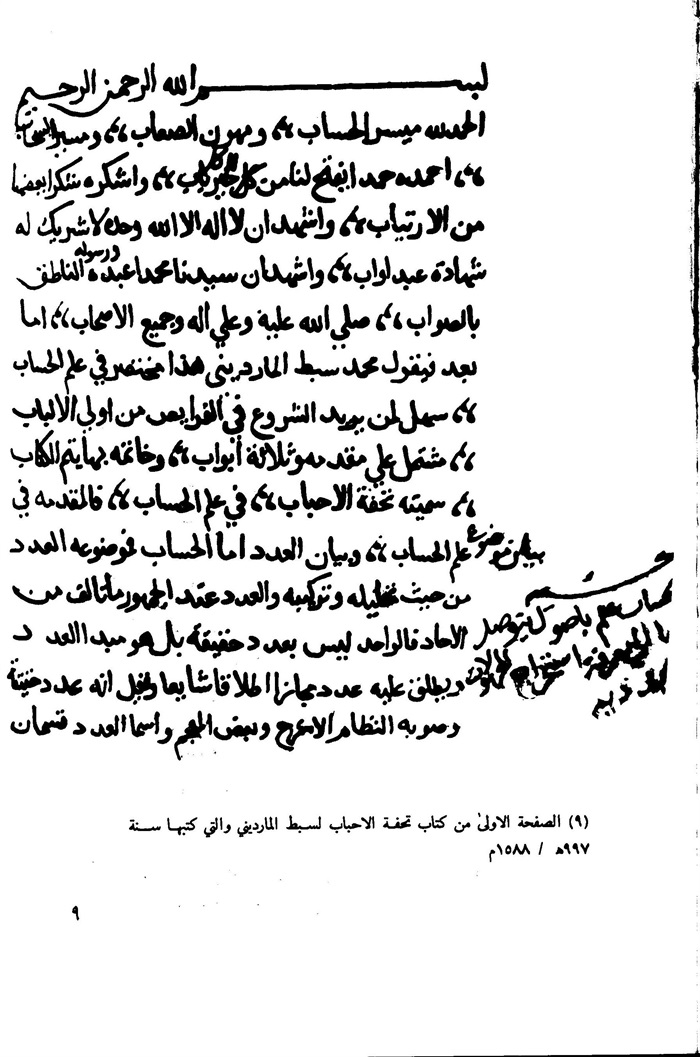 بسم الله الرحمن الرحيم
الحمد لله ميسر الحساب ، ومهون الصعاب ، ومسبر
، احمده حمدا يفتح لنا من كل خير باب ، واشكره شكرا
من الارتياب ، واشهد ان لا اله الا الله وحده لا شريك له
شهادة عبد اواب ، واشهد ان سيدنا محمدا عبده ورسوله الناطق
بالصواب ، صلي الله عليه وعلي اله وجميع الاصحاب ، اما
بعد فيقول محمد سبط المارديني هذا مختصر في علم الحساب
، سهل لمن يريد الشروع في الفرايض من اولي الالباب
، مشتمل علي مقدمه وثلاثة أبواب ، وخاتمه بها يتم الكتاب
، سميته تحفة الاحباب ، في علم الحساب ، فالمقدمه في
بيان موضوع علم الحساب ، وبيان العدد اما الحساب فموضوعه العدد
من حيث تحليله وتركيبه والعدد عند الجمهور ما تالف من
الاحاد فالواحد ليس بعدد حقيقة بل هو مبدا العدد
ويطلق عليه عدد مجازا اطلاقا شايعا وقيل انه عدد حقيقة
وصوبه النظام الاعرج وبعض العجم واسما العدد قسمان
حساب علم باصول يتوصل
بها الي معرفة استخراج المجهولات
(٩) الصفحة الاولىٰ من كتاب تحفة الاحباب لسبط المارديني والتي كتبها سنة
٩٩٧هـ / ١٥٨٨م
٩